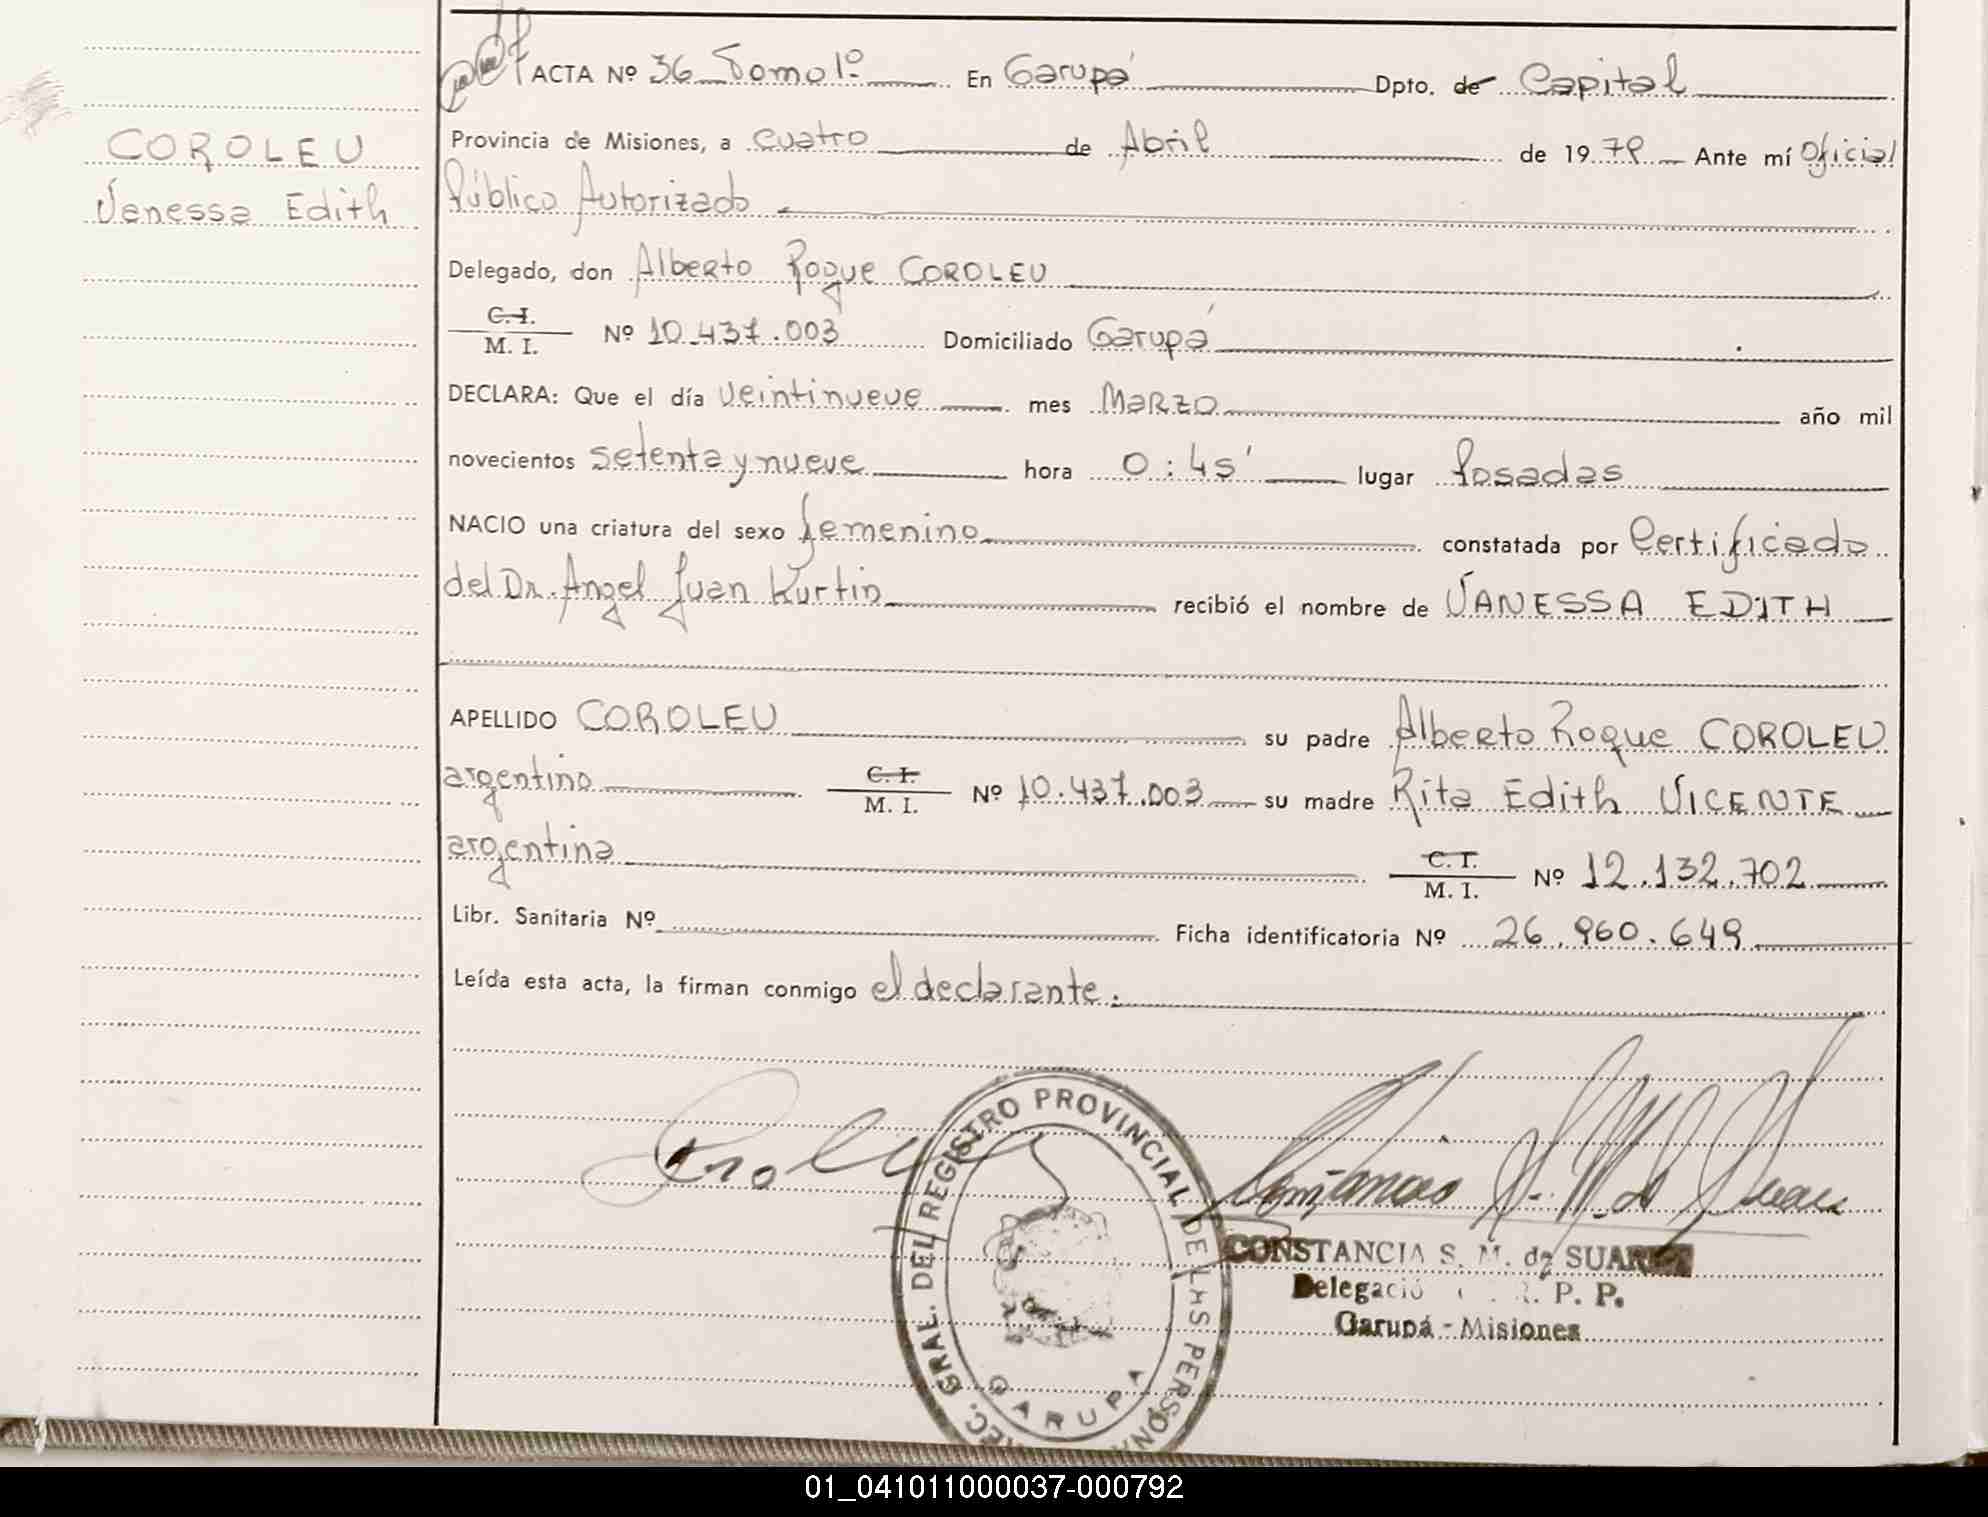 ACTA Nº 36 Tomo 1º En Garupá Dpto. de Capital
COROLEU
Vanessa Edith
Provincia de Misiones, a cuatro de Abril de 19 79 Ante mí Oficial
Público Autorizado
Delegado, don Alberto Roque COROLEU
C. I.
M. I. Nº 10.437.003 Domiciliado Garupá
DECLARA: Que el día veintinueve mes Marzo año mil
novecientos setenta y nueve hora 0:45' lugar Posadas
NACIO una criatura del sexo femenino constatada por Certificado
del Dr. Angel Juan Kurtin recibió el nombre de VANESSA EDITH
APELLIDO COROLEU su padre Alberto Roque COROLEU
argentino C. I. M. I. Nº 10.437.003 su madre Rita Edith VICENTE
argentina C. I. M. I. Nº 12.132.702
Libr. Sanitaria Nº Ficha identificatoria Nº 26.960.649
Leída esta acta, la firman conmigo el declarante.
Coroleu
GRAL. DEL REGISTRO PROVINCIAL DE LAS PERSONA
GARUPA
Constancia S. M. de Suarez
CONSTANCIA S. M. de SUAREZ
P. P.
Garupá - Misiones
01_041011000037-000792